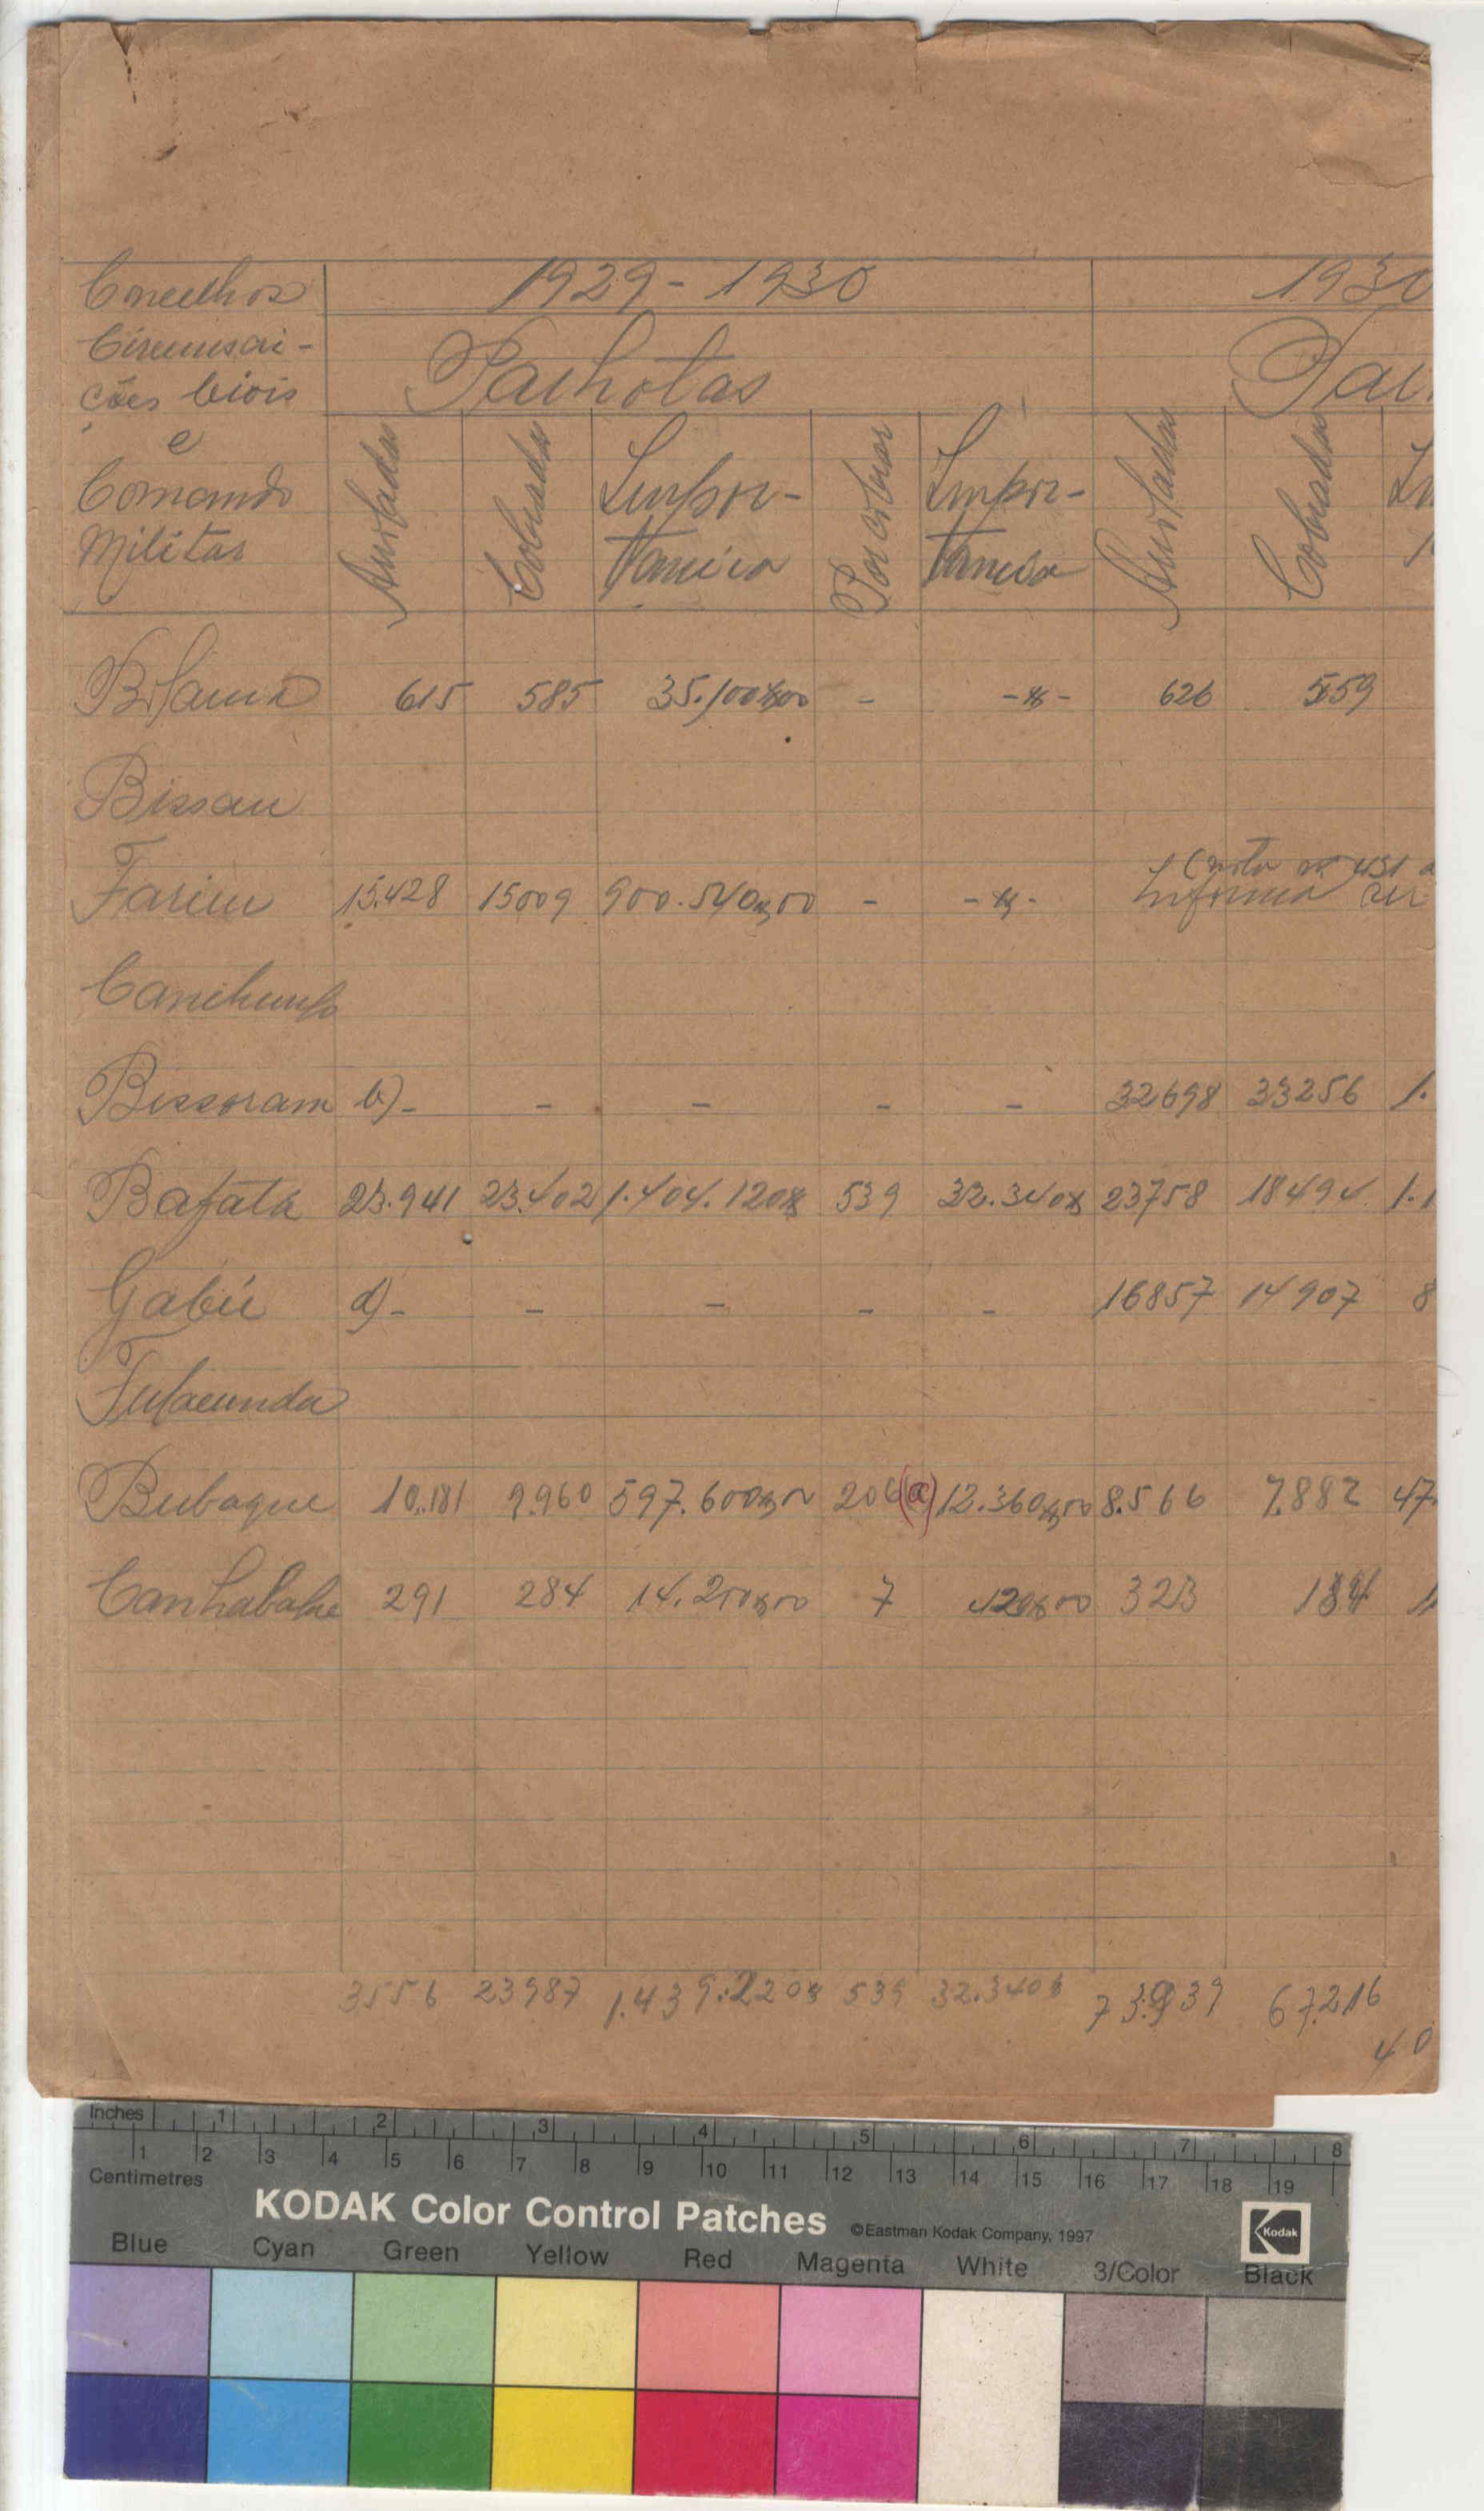 Concelhos
Circunscri-
ções Civis
e
Comando
Militar
1929-1930
1930
Palhotas
Pal
Arroladas
Cobradas
Impor-
tancia
Por cobrar
Impor-
tancia
Arroladas
Cobradas
Bolama 615 585 35.100$00 - -$- 626 559
Bissau
Farim 15.428 15009 900.540$00 - -$-
(nota nº 431
Informa
Canchungo
Bissoram b)- - - - - 32698 33256 1.
Bafatá 23.941 23.402 1.404.120$ 539 32.340$ 23758 18494 1.1
Gabú d)- - - - - 16857 14907 8
Fulacunda
Bubaque 10.181 9.960 597.600$00 206(a) 12.360$00 8.566 7.882 47
Canhabake 291 284 14.200$00 7 420$00 323 184
3556 23987 1.439.220$ 539 32.340$ 73.939 67.216
40
Inches 1 2 3 4 5 6 7 8
Centimetres 1 2 3 4 5 6 7 8 9 10 11 12 13 14 15 16 17 18 19
KODAK Color Control Patches ©Eastman Kodak Company, 1997 Kodak
Blue Cyan Green Yellow Red Magenta White 3/Color Black